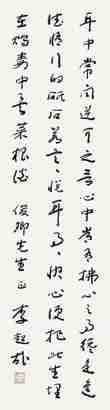 耳中常聞逆耳之言心中常有拂心之事是進
德修行的砥石若言言悅耳事事快心便把此生埋
在鴆毒中矣菜根譚 俊卿先生正 李超哉